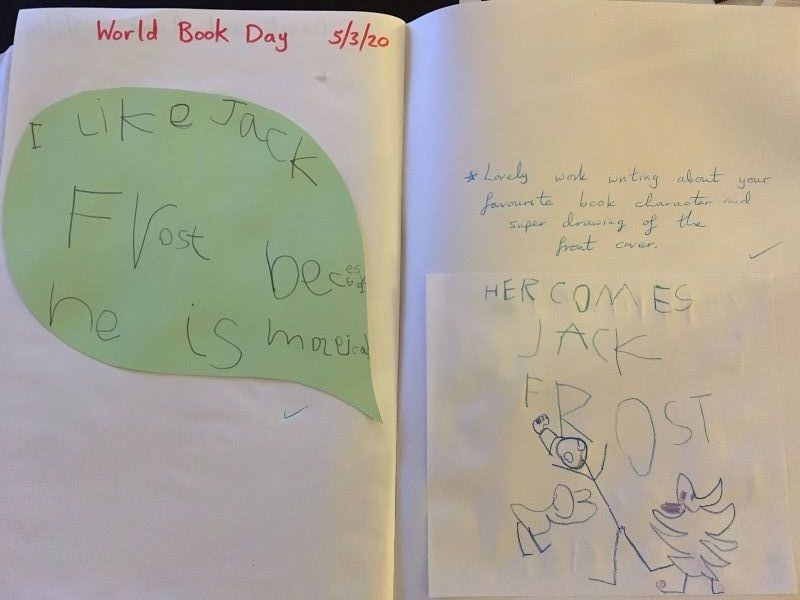 World Book Day 5/3/20
I Like Jack
Frost
he is magical
★ Lovely work writing about your
favourite book character and
super drawing of the
front cover.
HER COMES
JACK
FROST